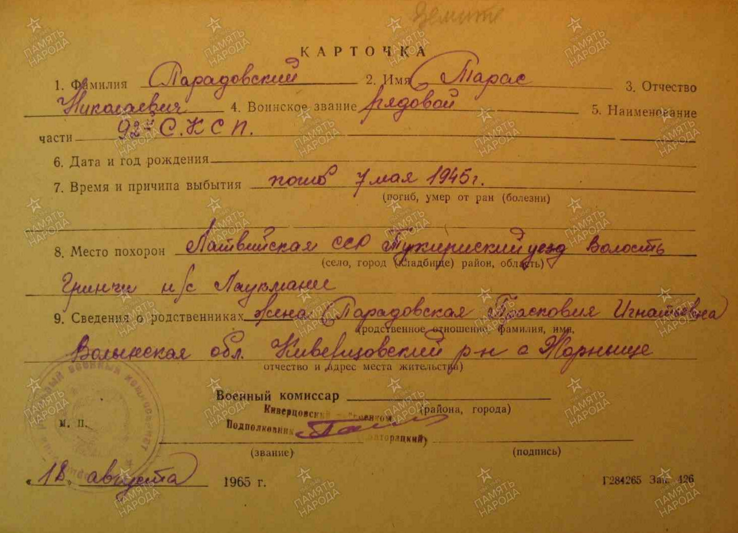 Земит
КАРТОЧКА
1. Фамилия Парадовский 2. Имя Тарас 3. Отчество
Николаевич 4. Воинское звание рядовой 5. Наименование
части 92й С.К С П.
6. Дата и год рождения
7. Время и причина выбытия погиб 7 мая 1945 г.
(погиб, умер от ран (болезни)
8. Место похорон Латвийская ССР Тукумский уезд волость
(село, город (кладбище) район, область)
н/с Лаукмани
9. Сведения о родственниках жена Парадовская Прасковия Игнатьевна
(родственное отношение, фамилия, имя,
Волынская обл. Киверцовский р-н с Жорнище
отчество и адрес места жительства)
Военный комиссар
Киверцовский
(района, города)
Подполковник
М. П.
(звание) (подпись)
18 августа 1965 г. Г284265 Зак. 126
ПАМЯТЬ НАРОДА